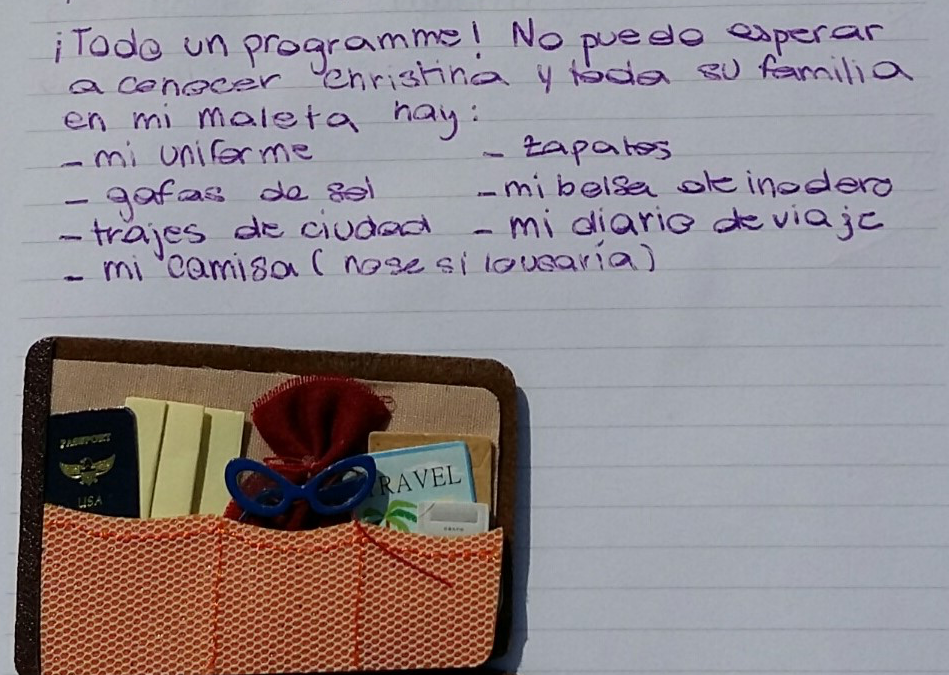 ¡Todo un programme! No puedo esperar
a conocer Christina y toda su familia
en mi maleta hay:
- mi uniforme - zapatos
- gafas de sol - mi bolsa de inodoro
- trajes de ciudad - mi diario de viaje
- mi camisa (no se si lo usaría)
PASSPORT
USA
TRAVEL